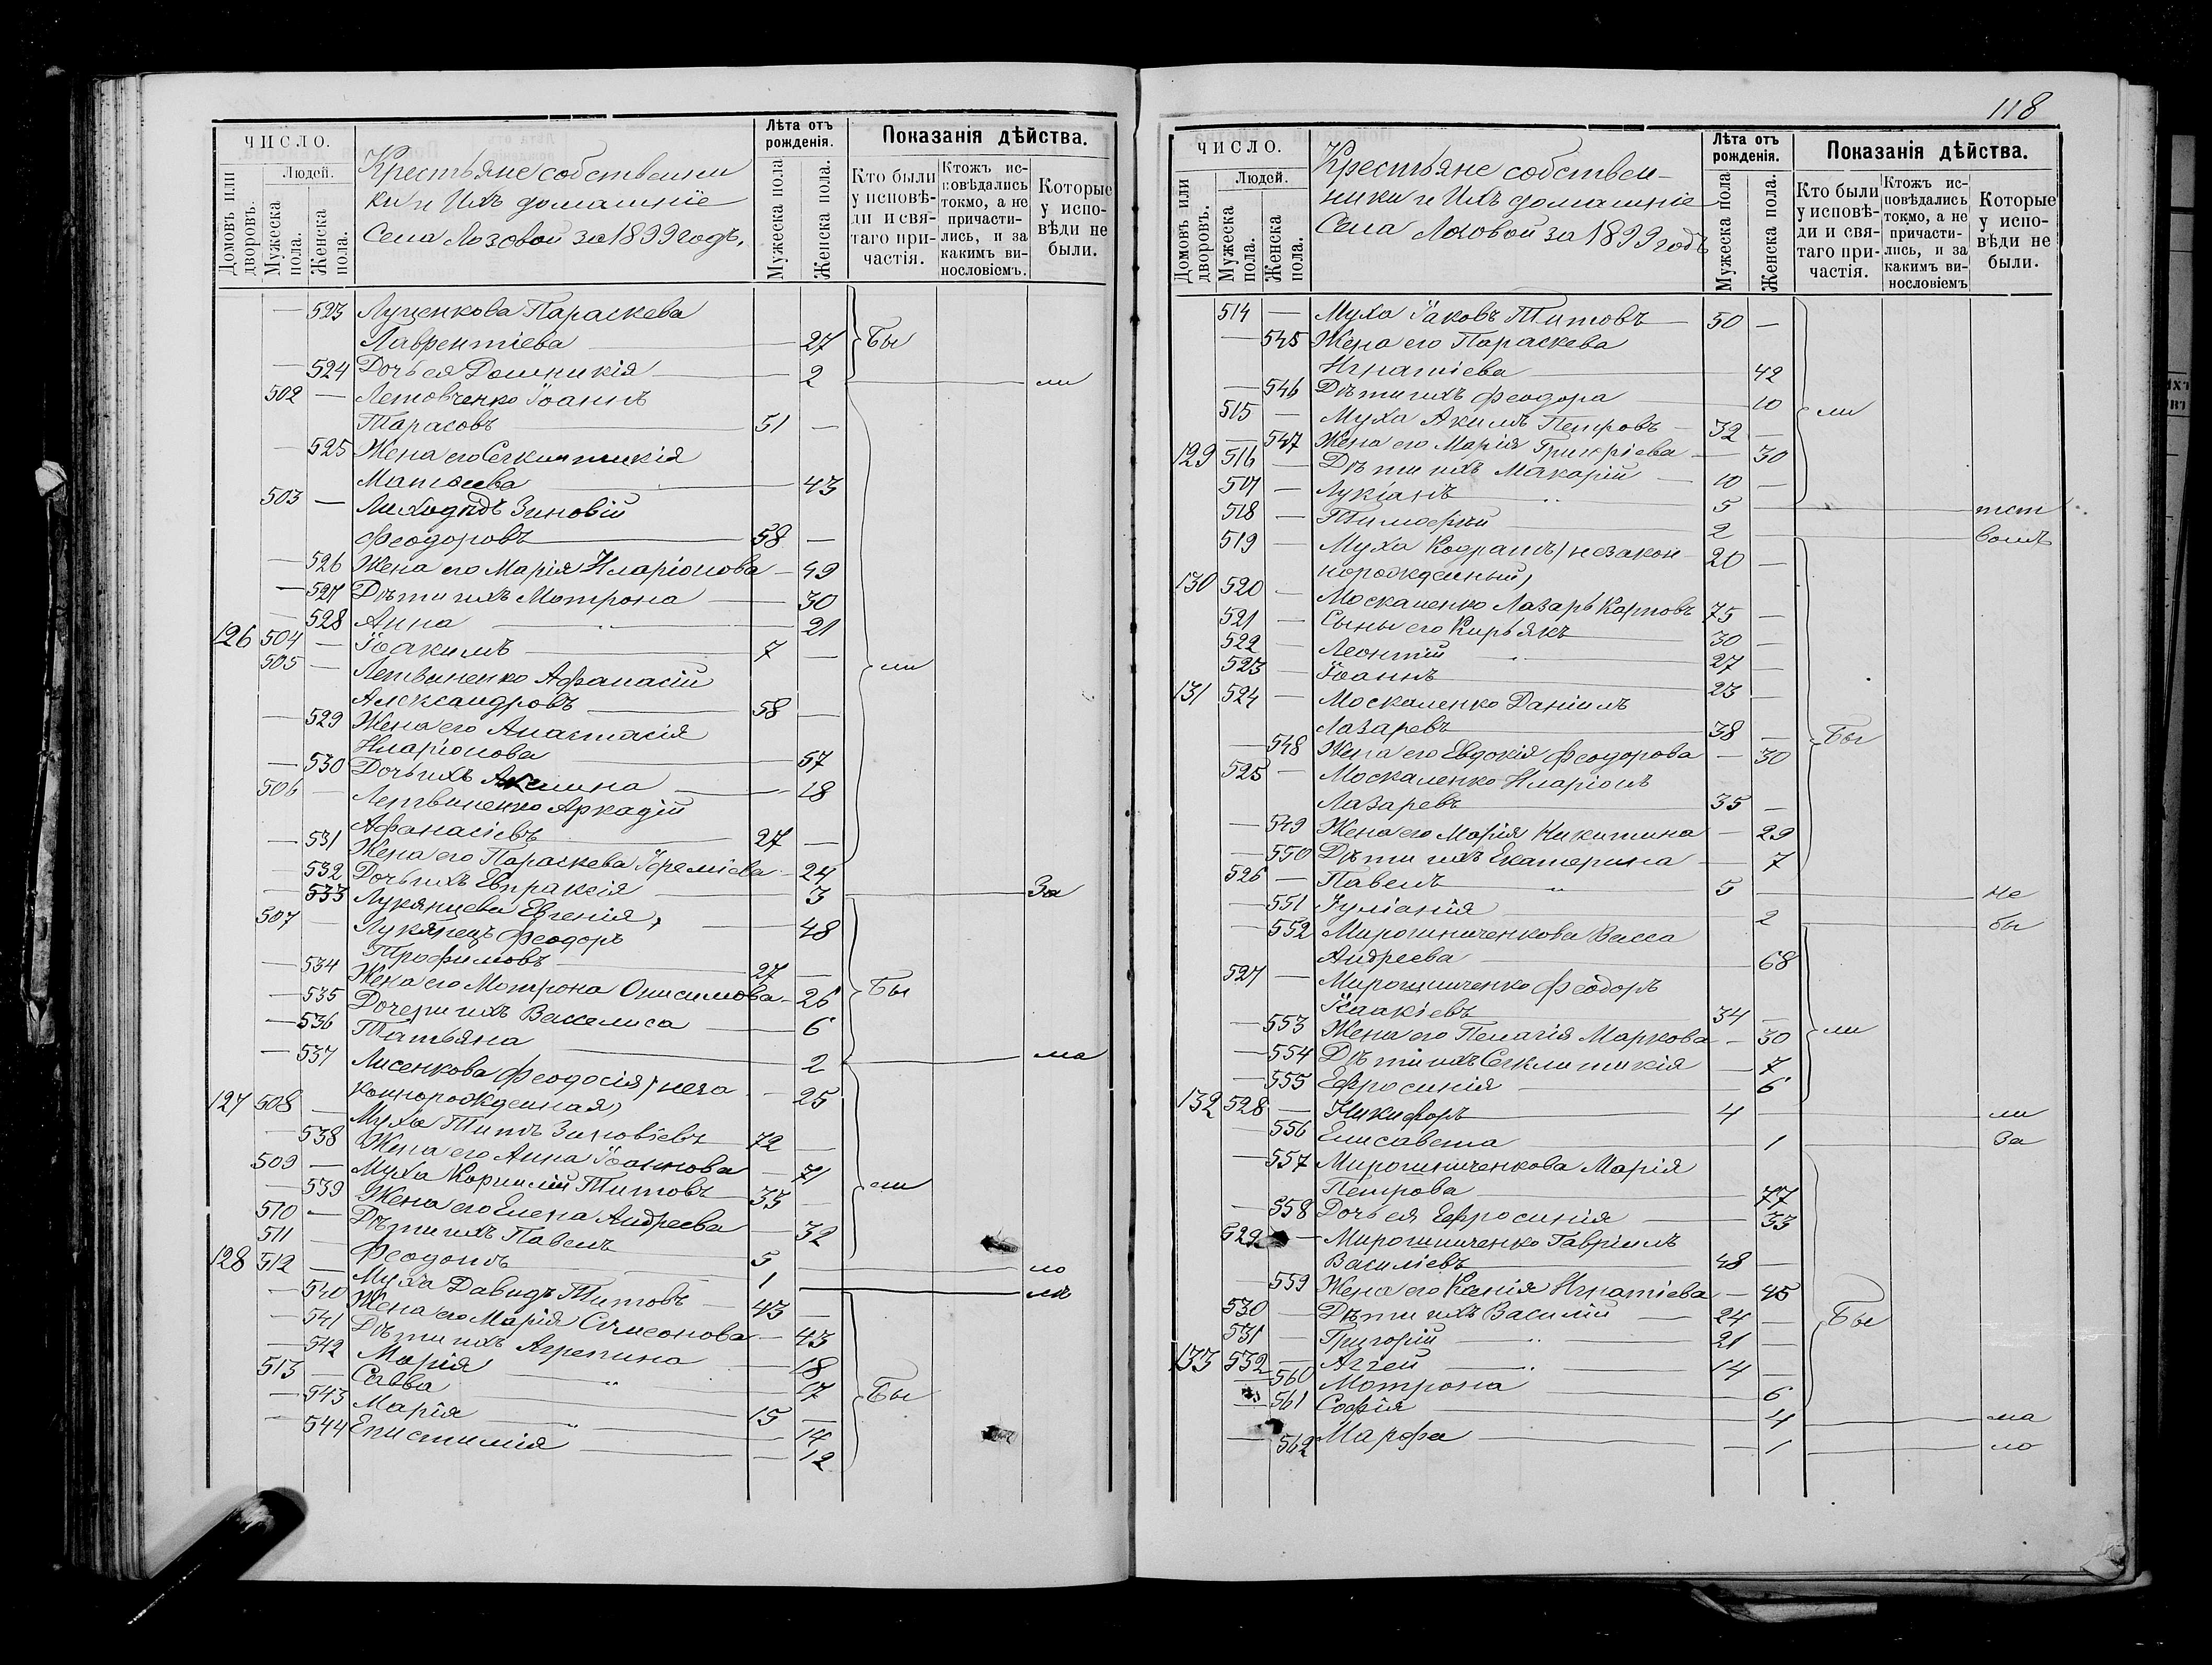 118
ЧИСЛО.
Домовъ или дворовъ.
Людей.
Мужеска пола.
Женска пола.
Крестьяне собственни
ки и Ихъ домашніе
Села Лозовой за 1899 годъ.
Лѣта отъ рожденія.
Мужеска пола
Женска пола.
Показанія дѣйства.
Кто были у исповѣди и святаго причастія.
Ктожъ исповѣдались токмо, а не причастились, и за какимъ винословіемъ.
Которые у исповѣди не были.
— 523 Луценкова Параскева
Лаврентіева — 27 Бы
— 524 Дочь ея Домникія — 2 — ли
502 — Летовченко Іоаннъ
Тарасовъ 51 —
— 525 Жена его Секлитикія
Матѳеева — 43
503 — Лиходѣдъ Зиновій
Феодоровъ 58 —
— 526 Жена его Марія Иларіонова — 49
— 527 Дѣти ихъ Мотрона — 30
— 528 Анна „ — 21
126 504 — Іоакимъ 7 —
505 — Летвиненко Афанасій ли
Александровъ 58 —
— 529 Жена его Анастасія
Иларіонова — 57
— 530 Дочь ихъ Акилина — 18
506 — Летвиненко Аркадій
Афанасіевъ 27 —
— 531 Жена его Параскева Іереміева — 24
532 Дочь ихъ Евпраксія — 3 — За
533 Лукянцева Евгенія, — 48
507 — Лукянецъ Феодоръ
Трофимовъ 27 —
— 534 Жена его Мотрона Онисимова — 26 Бы
— 535 Дочери ихъ Василиса — 6
— 536 Татьяна — 2 — ма
— 537 Лисенкова Феодосія (неза
коннорожденная) — 25
127 508 — Муха Титъ Зиновіевъ 72 —
— 538 Жена его Анна Іоаннова — 71
509 — Муха Корнилій Титовъ 33 — ли
— 539 Жена его Елена Андреева — 32
510 — Дѣти ихъ Павелъ 5
511 — Феодотъ 1 — ло
128 512 — Муха Давидъ Титовъ 43 — лѣ
— 540 Жена его Марія Симеонова — 43
— 541 Дѣти ихъ Агрепина — 18
— 542 Марія „ — 17
513 — Савва 15 — Бы
— 543 Марія „ — 14
— 544 Епистимія — 12
ЧИСЛО.
Домовъ или дворовъ.
Людей.
Мужеска пола.
Женска пола.
Крестьяне собствен-
ники и Ихъ домашніе
Села Лозовой за 1899 годъ
Лѣта отъ рожденія.
Мужеска пола
Женска пола.
Показанія дѣйства.
Кто были у исповѣди и святаго причастія.
Ктожъ исповѣдались токмо, а не причастились, и за какимъ винословіемъ
Которые у исповѣди не были.
514 — Муха Іаковъ Титовъ 50 —
— 545 Жена его Параскева
Игнатіева — 42
— 546 Дѣти ихъ Феодора — 10
515 — Муха Акимъ Петровъ 32 — ли
— 547 Жена его Марія — 30
129 516 — Дѣти ихъ Макарій 10 —
517 — Лукіанъ „ 5 — тст
518 — Тимофей 2 — вомъ
519 — Муха Кодратъ (незакон 20 —
норожденный)
130 520 — Москаленко Лазарь Карповъ 75 —
521 — Сыны его Кирьякъ 30 —
522 — Леонтій „ 27 —
523 — Іоаннъ 23 —
131 524 — Москаленко Даніилъ
Лазаревъ 38 — Бы
— 548 Жена его Евдокія Феодорова — 30
525 — Москаленко Иларіонъ
Лазаревъ 35 —
— 549 Жена его Марія Никитина — 29
— 550 Дѣти ихъ Екатерина — 7
526 — Павелъ „ 5 — не
— 551 Іуліанія 2 — бы
— 552 Мирошниченкова Васса
Андреева — 68
527 — Мирошниченко Феодоръ
Ісаакіевъ 34 —
— 553 Жена его Пелагія Маркова — 30 ли
— 554 Дѣти ихъ Секлитикія — 7
— 555 Ефросинія — 6
132 528 — Никифоръ 4 — ли
556 Елисавета 1 — За
— 557 Мирошниченкова Марія
Петрова — 77
— 558 Дочь ея Ефросинія — 33
529 — Мирошниченко Гавріилъ
Василіевъ 48 —
— 559 Жена его Ксенія Игнатіева — 45
530 — Дѣти ихъ Василій 24 — Бы
531 — Григорій „ 21 —
133 532 — Аггей „ 14 —
— 560 Мотрона — 6
— 561 Софія 4 — ма
— 562 Марфа — 1 — ло